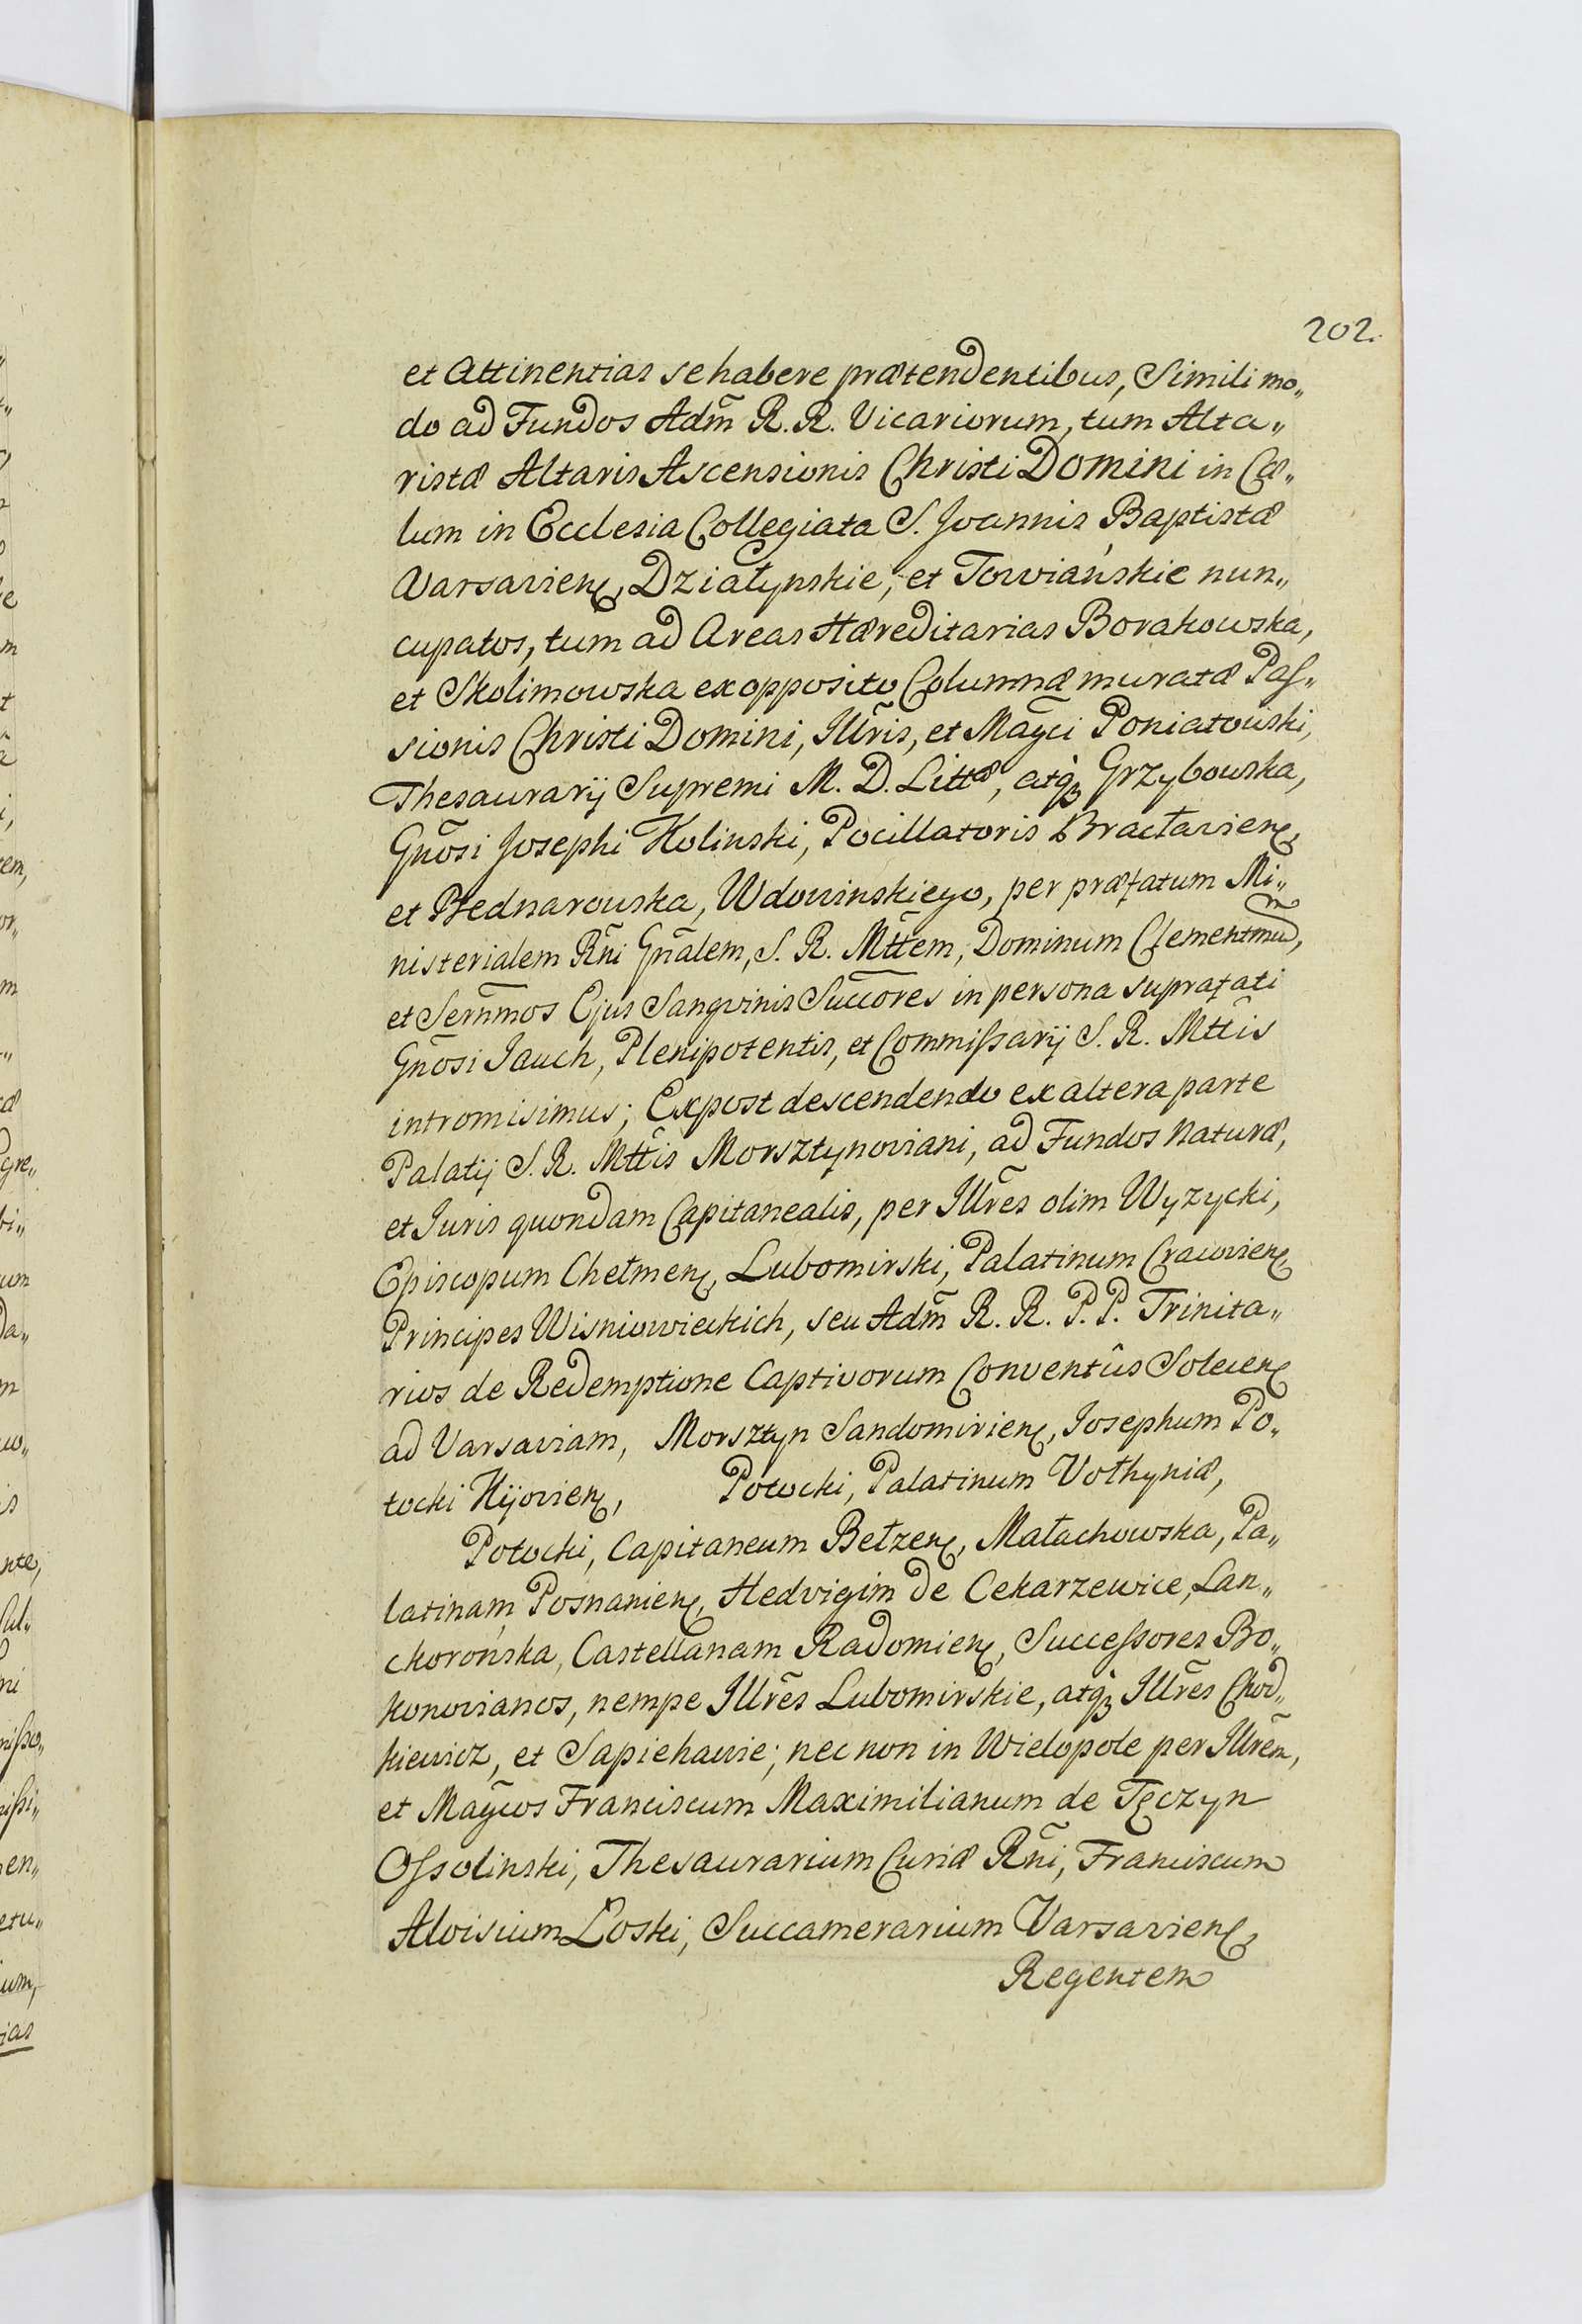 202.
et Attinentias se habere prætendentibus, Simili mo„
do ad Fundos Adm̃ R. R. Vicariorum, tum Alta„
ristæ Altaris Ascensionis Christi Domini in Cæ„
lum in Ecclesia Collegiata S. Joannis Baptistæ
Varsavien, Działynskie, et Towiańskie nun„
cupatos, tum ad Areas Hæreditarias Borakowska,
et Skolimowska ex opposito Columnæ muratæ Paſ„
sionis Christi Domini, Illr̃is, et Mag̃ci Poniatowski,
Thesaurarij Supremi M. D. Littæ, atq̃ Grzybowska,
Gño̅si Josephi Kolinski, Pocillatoris Bracłavien,
et Bednarowska, Wdowinskiego, per præfatum Mi„
nisterialem Rñi Gñalem, S. R. Mttem, Dominum Clementm̃um,
et Serñmos Ejus Sangvinis Succ̃ores in persona suprafati
Gñosi Jauch, Plenipotentis, et Commiſsarij S. R. Mttis
intromisimus; Expost descendendo ex altera parte
Palatij S. R. Mttis Morsztynoviani, ad Fundos Naturæ,
et Juris quondam Capitanealis, per Illr̃es olim Wyzycki,
Episcopum Chełmen, Lubomirski, Palatinum Cracovien,
Principes Wisniowieckich, seu Adm̃ R. R. P. P. Trinita„
rios de Redemptione Captivorum Conventûs Solecen
ad Varsaviam, Morsztyn Sandomirien, Josephum Po„
tocki Kijovien, Potocki, Palatinum Vołhyniæ,
Potocki, Capitaneum Bełzen, Małachowska, Pa„
latinam Posnanien, Hedvigim de Cekarzewice, Lan„
ckorońska, Castellanam Radomien, Succeſsores Bo„
konovianos, nempe Illr̃es Lubomirskie, atq̃ Illr̃es Chod„
kiewicz, et Sapiehawie; nec non in Wielopole per Illr̃em,
et Mag̃cos Franciscum Maximilianum de Tęczyn
Oſsolinski, Thesaurarium Curiæ Rñi, Franciscum
Aloisium Łoski, Succamerarium Varsavien,
Regentem